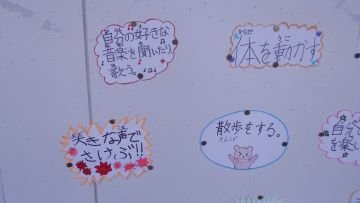 自分の好きな
音楽を聞いたり
歌う。
からだ うご
体を動かす
大きな声で
さけぶ!!
散歩をする。
さんぽ
自分
を楽し